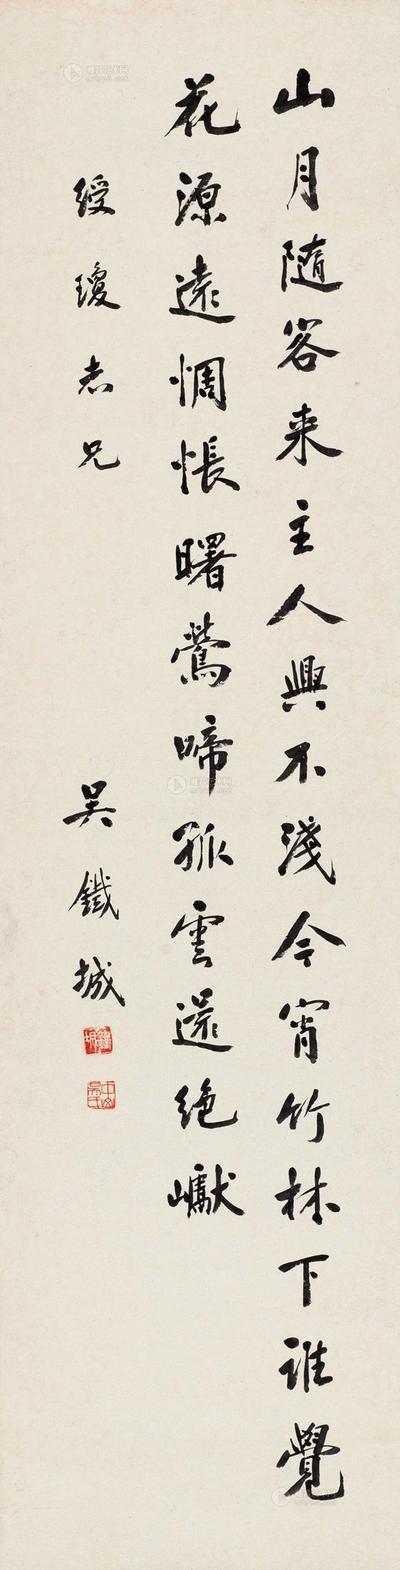 山月隨客来主人興不淺今宵竹林下誰覺
花源遠惆悵曙鶯啼孤雲還絶巘
綬瓊志兄
吳鐵城